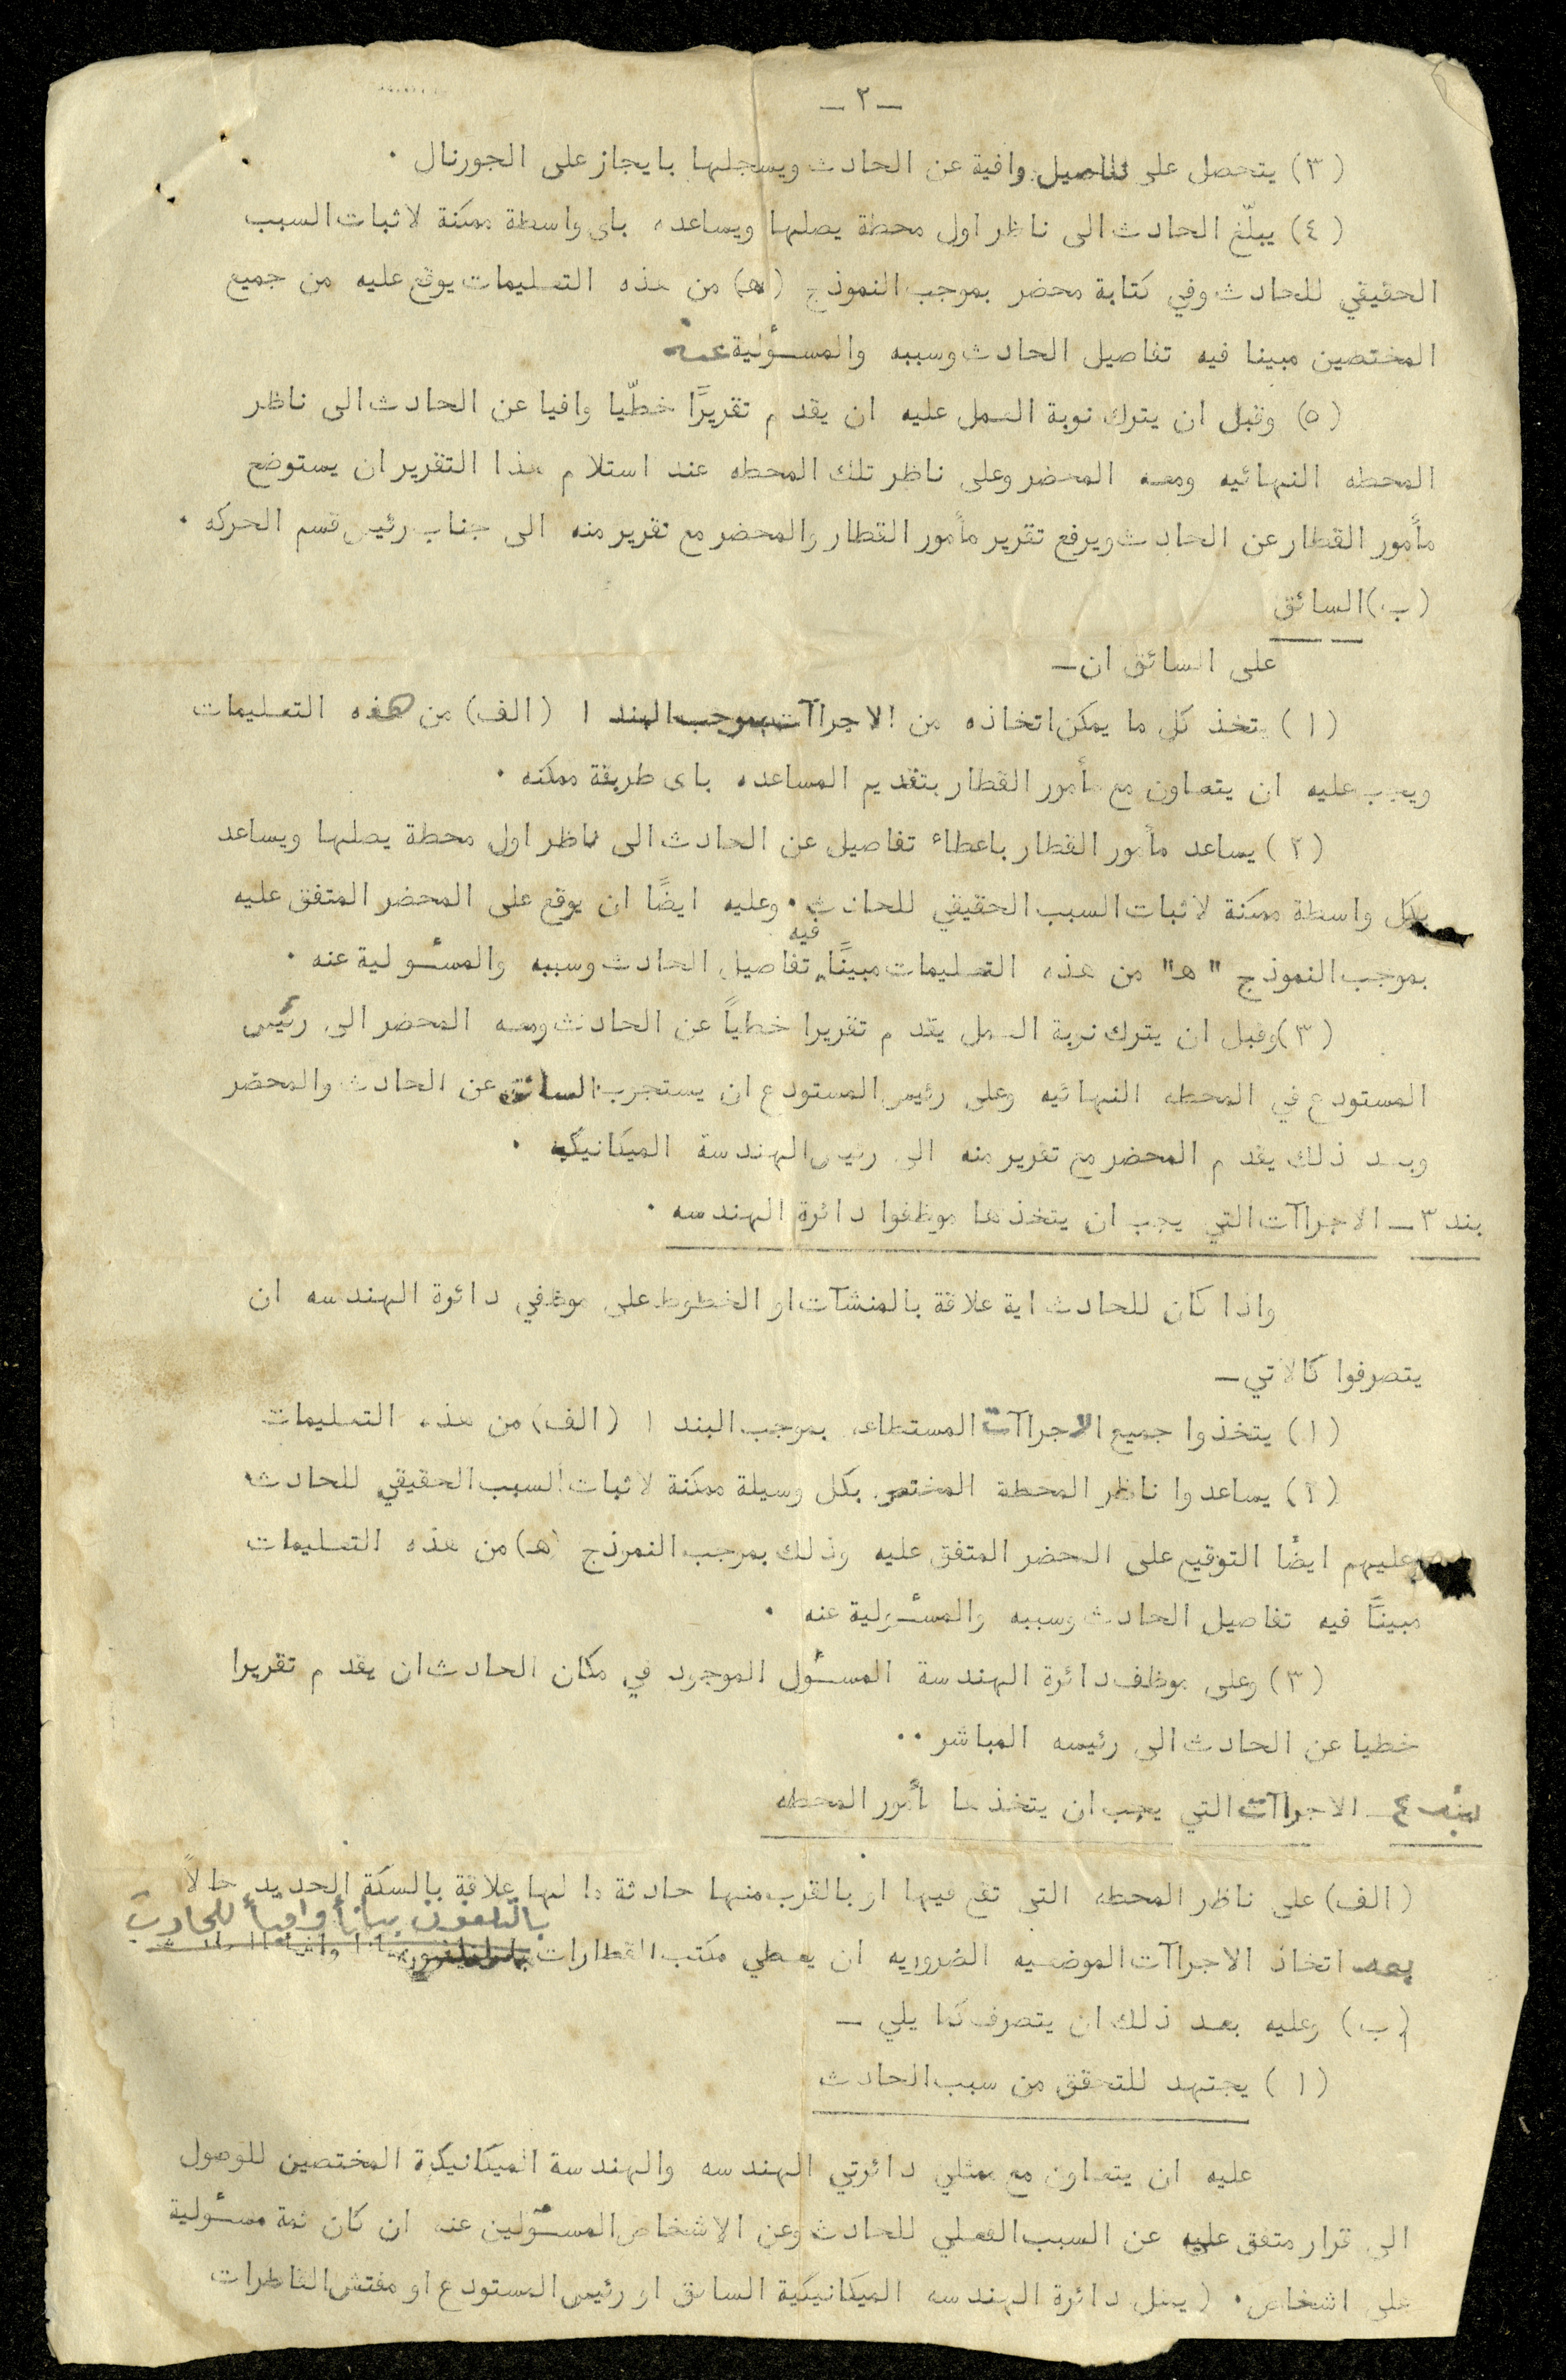 — ٢ —
(٣) يتحصل على تفاصيل وافية عن الحادث ويسجلها بايجاز على الجورنال ٠
(٤) يبلّغ الحادث الى ناظر اول محطة يصلها ويساعده باى واسطة ممكنة لاثبات السبب
الحقيقي للحادث وفي كتابة محضر بموجب النموذج (هـ) من هذه التعليمات يوقع عليه من جميع
المختصين مبينا فيه تفاصيل الحادث وسببه والمسئولية عنه
(٥) وقبل ان يترك نوبة العمل عليه ان يقدم تقريرًا خطّيا وافيا عن الحادث الى ناظر
المحطه النهائيه ومعه المحضر وعلى ناظر تلك المحطه عند استلام هذا التقرير ان يستوضح
مأمور القطار عن الحادث ويرفع تقرير مأمور القطار والمحضر مع تقرير منه الى جناب رئيس قسم الحركه ٠
(ب) السائق
على السائق ان —
(١) يتخذ كل ما يمكن اتخاذه من الاجراآت بموجب البند ١ (الف) من هذه التعليمات
ويجب عليه ان يتعاون مع مأمور القطار بتقديم المساعده باى طريقة ممكنه ٠
(٢) يساعد مأمور القطار باعطاء تفاصيل عن الحادث الى ناظر اول محطة يصلها ويساعد
بكل واسطة ممكنة لاثبات السبب الحقيقي للحادث ٠ وعليه ايضًا ان يوقع على المحضر المتفق عليه
بموجب النموذج "هـ" من هذه التعليمات مبينًا فيه تفاصيل الحادث وسببه والمسئولية عنه ٠
(٣) وقبل ان يترك نوبة العمل يقدم تقريرا خطياً عن الحادث ومعه المحضر الى رئيس
المستودع في المحطه النهائيه وعلى رئيس المستودع ان يستجوب السائق عن الحادث والمحضر
وبعد ذلك يقدم المحضر مع تقرير منه الى رئيس الهندسة الميكانيكيه ٠
بند ٣ — الاجراآت التي يجب ان يتخذها موظفوا دائرة الهندسه ٠
واذا كان للحادث اية علاقة بالمنشآت او الخطوط على موظفي دائرة الهندسه ان
يتصرفوا كالاتي —
(١) يتخذوا جميع الاجراآت المستطاعه بموجب البند ١ (الف) من هذه التعليمات
(٢) يساعدوا ناظر المحطة المختص بكل وسيلة ممكنة لاثبات السبب الحقيقي للحادث
وعليهم ايضًا التوقيع على المحضر المتفق عليه وذلك بموجب النموذج (هـ) من هذه التعليمات
مبينًا فيه تفاصيل الحادث وسببه والمسئولية عنه ٠
(٣) وعلى موظف دائرة الهندسة المسئول الموجود في مكان الحادث ان يقدم تقريرا
خطيا عن الحادث الى رئيسه المباشر ٠٠
بند ٤ — الاجراآت التي يجب ان يتخذها مأمور المحطه
(الف) على ناظر المحطه التى تقع فيها او بالقرب منها حادثة ما لها علاقة بالسكة الحديد حالاً
بالتلفون بيانأ وافيأ للحادث
بعد اتخاذ الاجراآت الموضعيه الضروريه ان يعطي مكتب القطارات
(ب) وعليه بعد ذلك ان يتصرف كما يلي —
(١) يجتهد للتحقق من سبب الحادث
عليه ان يتعاون مع ممثلي دائرتي الهندسه والهندسة الميكانيكية المختصين للوصول
الى قرار متفق عليه عن السبب الفعلي للحادث وعن الاشخاص المسئولين عنه ان كان ثمة مسئولية
على اشخاص ٠ (يمثل دائرة الهندسه الميكانيكية السائق او رئيس المستودع او مفتش القاطرات